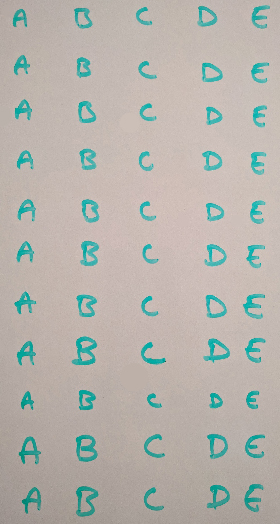 A B C D E
A B C D E
A B C D E
A B C D E
A B C D E
A B C D E
A B C D E
A B C D E
A B C D E
A B C D E
A B C D E